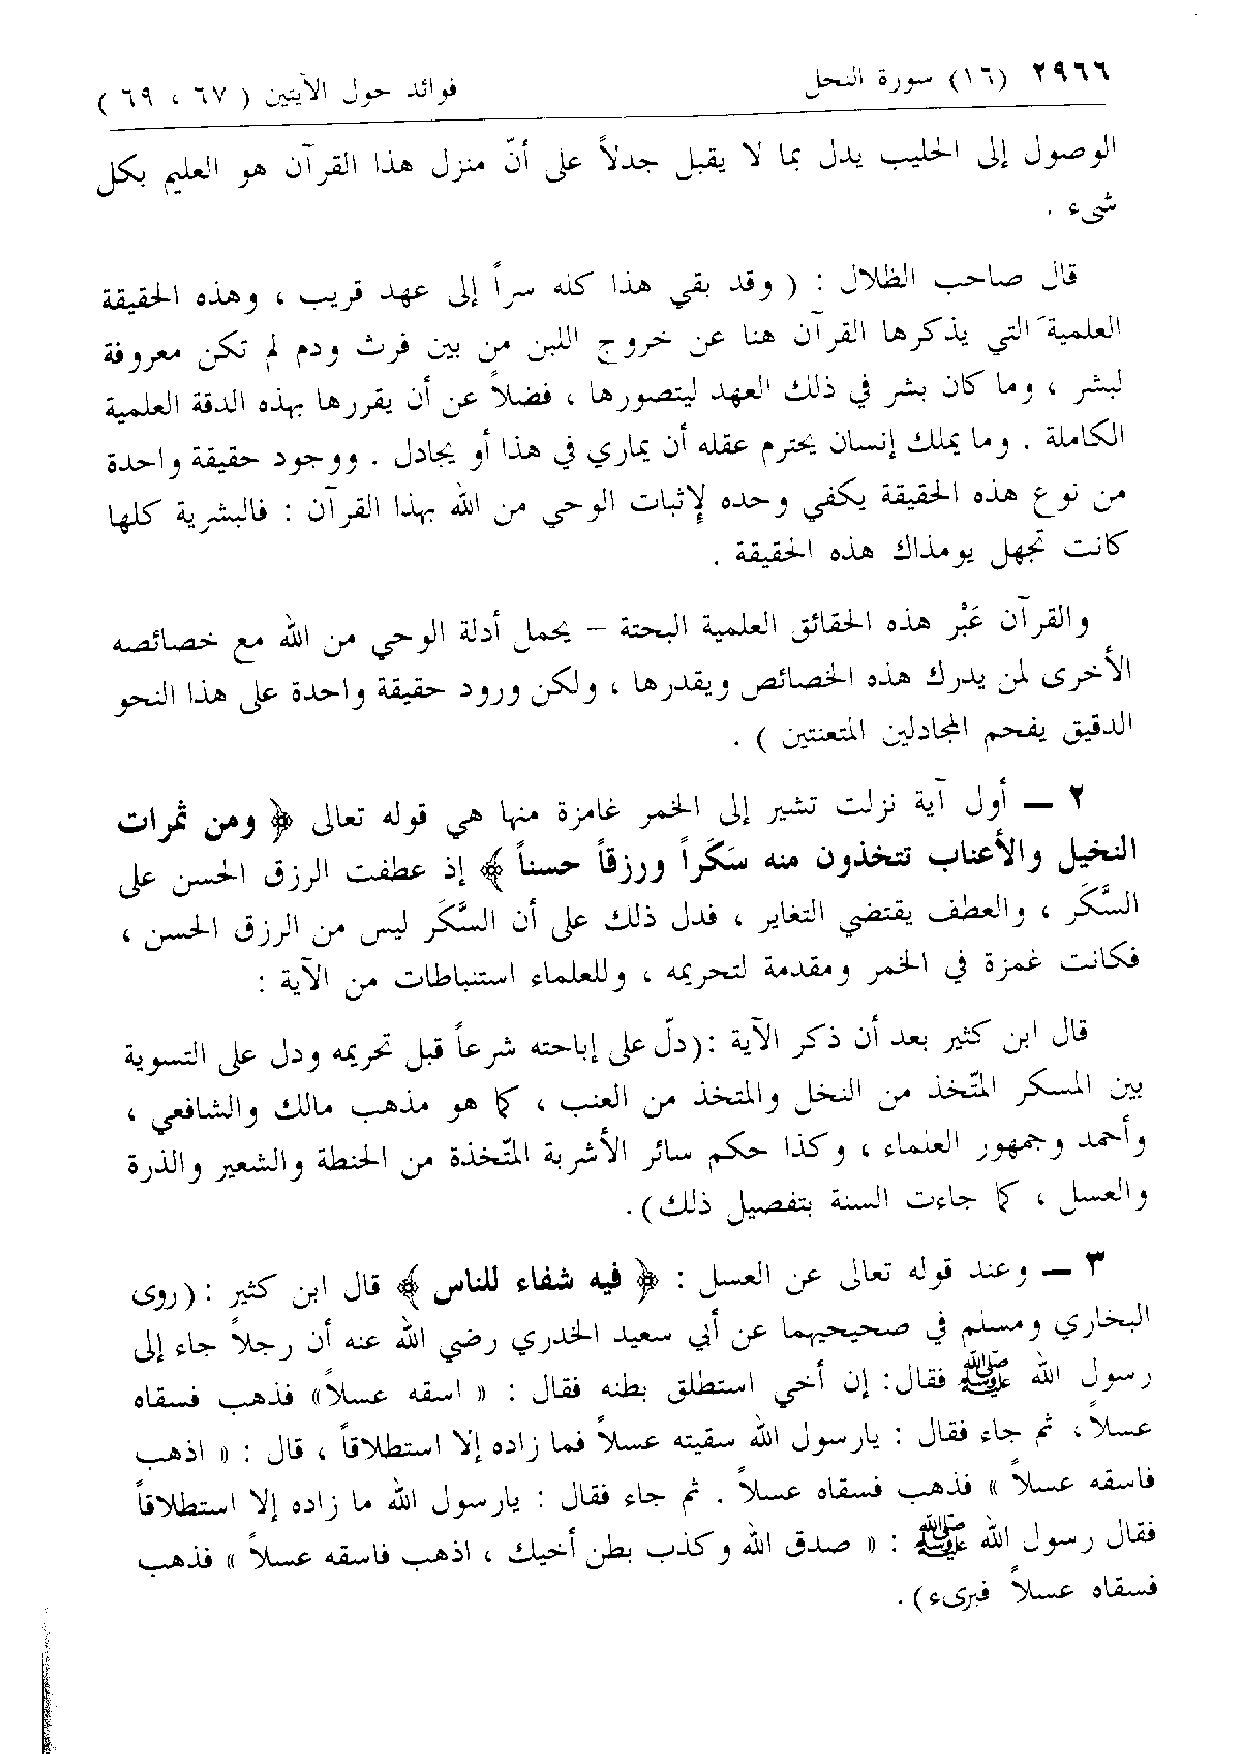 ٢٩٦٦ (١٦) سورة النحل فوائد حول الآيتين ( ٦٧ ، ٦٩ )
الوصول إلى الحليب يدل بما لا يقبل جدلاً على أنّ منزل هذا القرآن هو العليم بكل
شىء .
قال صاحب الظلال : ( وقد بقي هذا كله سراً إلى عهد قريب ، وهذه الحقيقة
العلمية التي يذكرها القرآن هنا عن خروج اللبن من بين فرث ودم لم تكن معروفة
لبشر ، وما كان بشر في ذلك العهد ليتصورها ، فضلاً عن أن يقررها بهذه الدقة العلمية
الكاملة . وما يملك إنسان يحترم عقله أن يماري في هذا أو يجادل . ووجود حقيقة واحدة
من نوع هذه الحقيقة يكفي وحده لإثبات الوحي من الله بهذا القرآن : فالبشرية كلها
كانت تجهل يومذاك هذه الحقيقة .
والقرآن عَبْر هذه الحقائق العلمية البحتة – يحمل أدلة الوحي من الله مع خصائصه
الأخرى لمن يدرك هذه الخصائص ويقدرها ، ولكن ورود حقيقة واحدة على هذا النحو
الدقيق يفحم المجادلين المتعنتين ) .
٢ – أول آية نزلت تشير إلى الخمر غامزة منها هي قوله تعالى ﴿ ومن ثمرات
النخيل والأعناب تتخذون منه سَكَراً ورزقاً حسناً ﴾ إذ عطفت الرزق الحسن على
السَّكَر ، والعطف يقتضي التغاير ، فدل ذلك على أن السَّكَر ليس من الرزق الحسن ،
فكانت غمزة في الخمر ومقدمة لتحريمه ، وللعلماء استنباطات من الآية :
قال ابن كثير بعد أن ذكر الآية :(دلّ على إباحته شرعاً قبل تحريمه ودل على التسوية
بين المسكر المتّخذ من النخل والمتخذ من العنب ، كما هو مذهب مالك والشافعي ،
وأحمد وجمهور العلماء ، وكذا حكم سائر الأشربة المتّخذة من الحنطة والشعير والذرة
والعسل ، كما جاءت السنة بتفصيل ذلك).
٣ – وعند قوله تعالى عن العسل : ﴿ فيه شفاء للناس ﴾ قال ابن كثير :(روى
البخاري ومسلم في صحيحيهما عن أبي سعيد الخدري رضي الله عنه أن رجلاً جاء إلى
رسول الله ﷺ فقال: إن أخي استطلق بطنه فقال : « اسقه عسلاً» فذهب فسقاه
عسلاً، ثم جاء فقال : يارسول الله سقيته عسلاً فما زاده إلا استطلاقاً ، قال : « اذهب
فاسقه عسلاً » فذهب فسقاه عسلاً . ثم جاء فقال : يارسول الله ما زاده إلا استطلاقاً
فقال رسول الله ﷺ : « صدق الله وكذب بطن أخيك ، اذهب فاسقه عسلاً » فذهب
فسقاه عسلاً فبرىء).